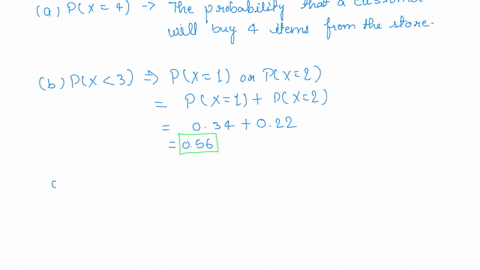 (a) P(X = 4) -> The probability that a custome
will buy 4 items from the store.
(b) P(X < 3) => P(X=1) or P(X=2)
= P(X=1) + P(X=2)
= 0.34 + 0.22
= 0.56